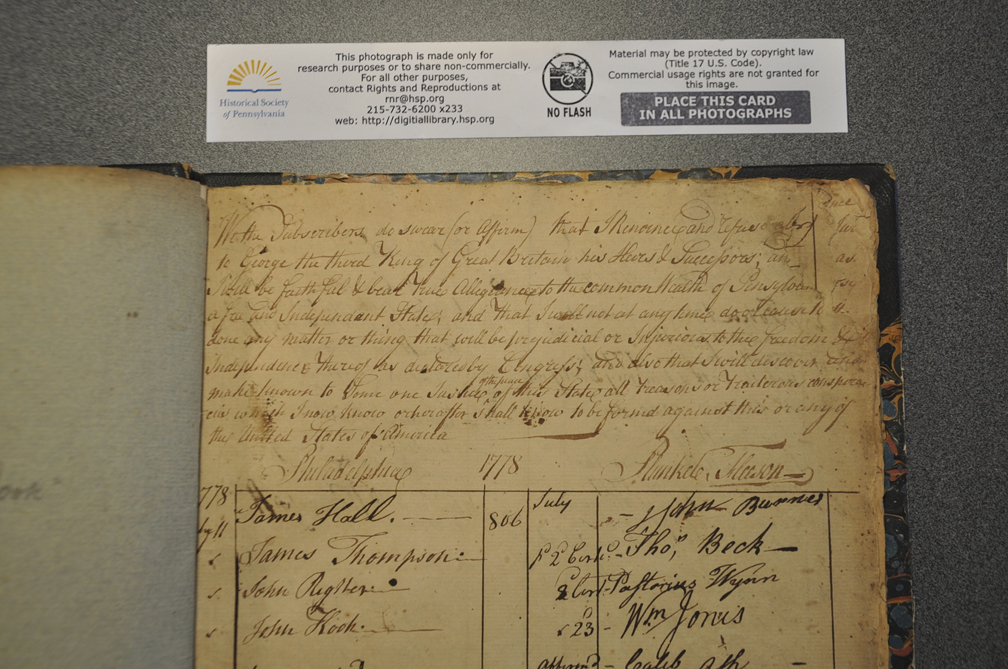 Historical Society
of Pennsylvania
This photograph is made only for
research purposes or to share non-commercially.
For all other purposes,
contact Rights and Reproductions at
rnr@hsp.org
215-732-6200 x233
web: http://digitiallibrary.hsp.org
NO FLASH
Material may be protected by copyright law
(Title 17 U.S. Code).
Commercial usage rights are not granted for
this image.
PLACE THIS CARD
IN ALL PHOTOGRAPHS
We the Subscribers do swear (or Affirm) that I Renounce and refuse
to George the third King of Great Britain his Heirs & Successors;
I will be faithful & bear True Allegiance to the common Wealth of
a free and Independant State, and that I will not at any time do or cause to
done any matter or thing that will be prejudicial or Injurious to the freedom &
Independence thereof as declared by Congress; and also that I will discover and
make known to Some one Justice of the peace of this State all treasons or Traiterous
which I now know or hereafter I shall know to be formed against this or any of
the United States of America
Philadelphia 1778
778 James Hall. 806 July John Bunner
James Thompson Thos Beck
John Righter Pastorius Wynn
John Koch 23 Wm Jones